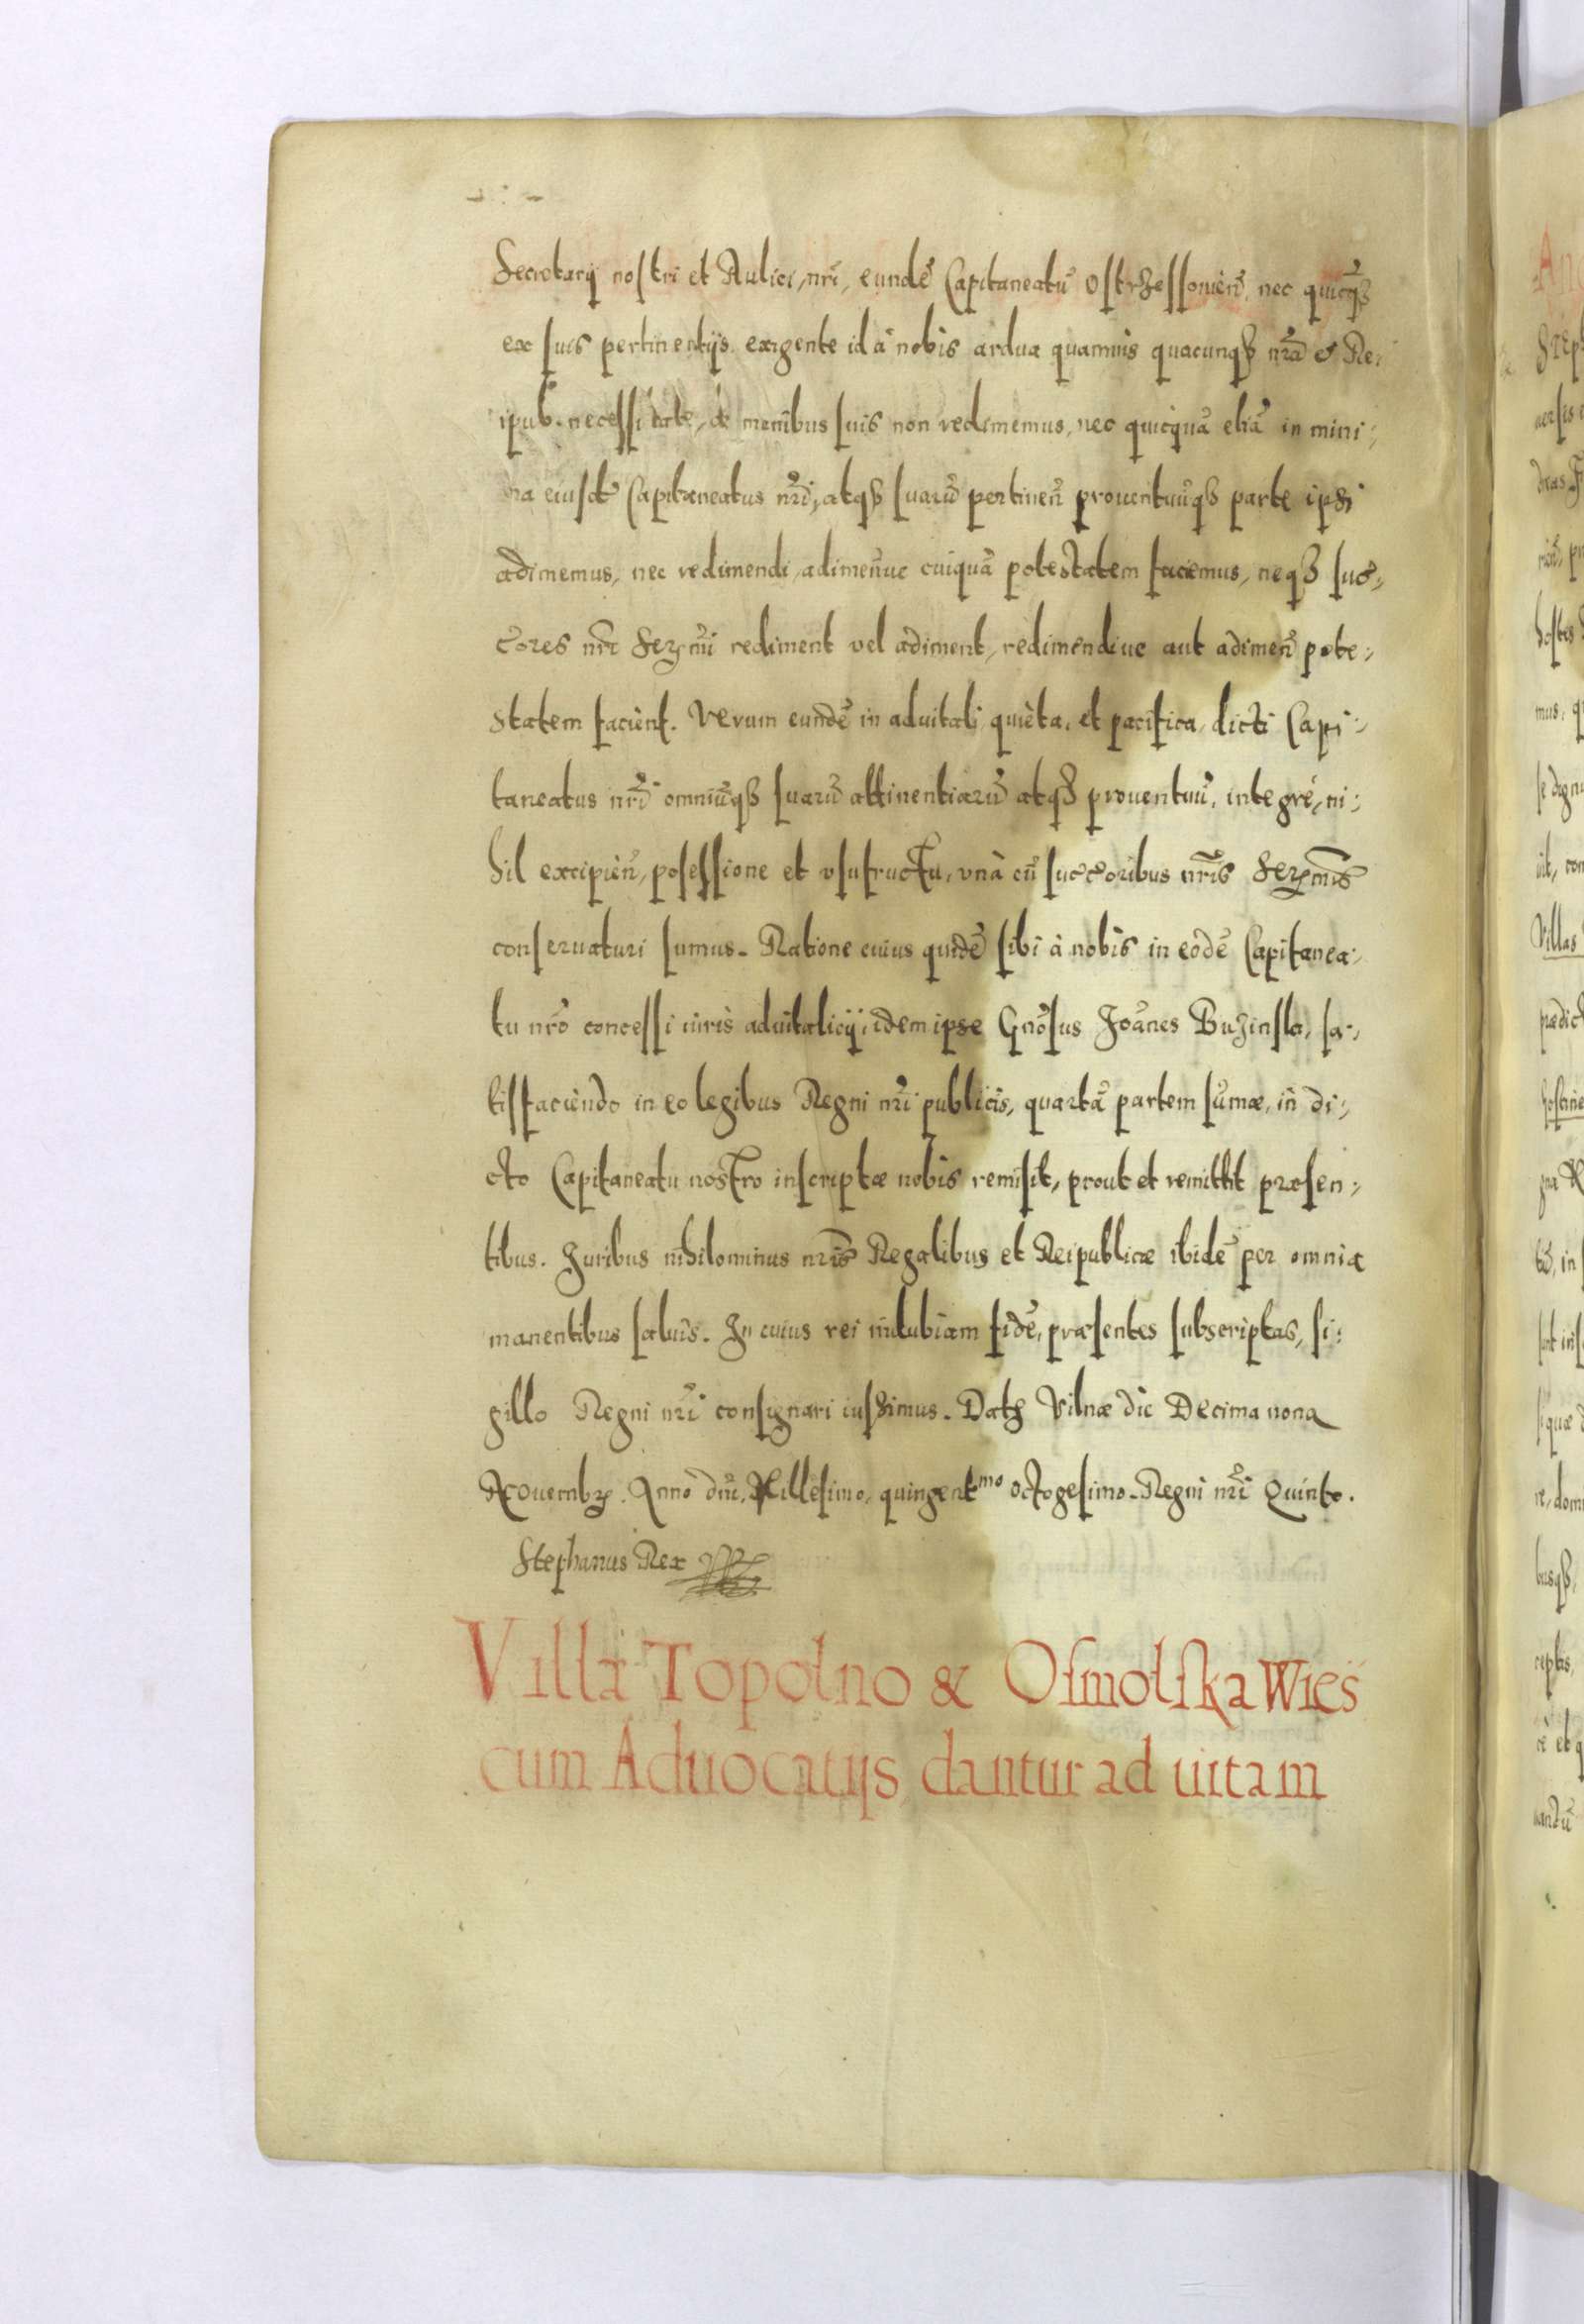 Secretarij nostri et Aulici, nrĩ, eundẽ Capitaneatũ Ostrzessouieñ, nec quicq̃ꝫ
ex suis pertinentijs exigente id à nobis ardua quamuis quacunqꝫ nrã & Re-
ipub. necessitate, de manibus suis non redimemus, nec quicquã etiã in mini-
ma eiusdẽ Capitaneatus nrĩ, atqꝫ suarũ pertineñ prouentuũqꝫ parte ipsi
adimemus, nec redimendi, adimeñue cuiquã potestatem faciemus, neqꝫ succ-
ores nrĩ Serᵐⁱ rediment vel adiment, redimendiue aut adimeñ pote-
statem facient. Verum eundẽ in aduitali quieta, et pacifica, dicti Capi-
taneatus nrĩ omniũqꝫ suarũ attinentiarũ atqꝫ prouentuũ, integrè, ni-
hil excipieñ, possessione et vsufructu, vnà cũ succoribus nrĩs Serᵐⁱˢ
conseruaturi sumus. Ratione cuius quidẽ sibi à nobis in eodẽ Capitanea-
tu nrõ concessi iuris aduitalicij, idem ipse Gnõsus Joãnes Buzinsky, sa-
tisfaciendo in eo legibus Regni nrĩ publicis, quartã partem sũmæ, in di-
cto Capitaneatu nostro inscriptæ nobis remisit, prout et remittit præsen-
tibus. Juribus nihilominus nrĩs Regalibus et Reipublicæ ibidẽ per omnia
manentibus saluis. In cuius rei indubiam fidẽ, præsentes subscriptas, si-
gillo Regni nrĩ consignari iussimus. Datꝫ Vilnæ die Decima nona
Nouembrꝫ. Anno dnĩ. Millesimo, quingentᵐᵒ octogesimo. Regni nrĩ Quinto.
Stephanus Rex
Villa Topolno & Osmolska Wies
cum Aduocatijs dantur ad uitam